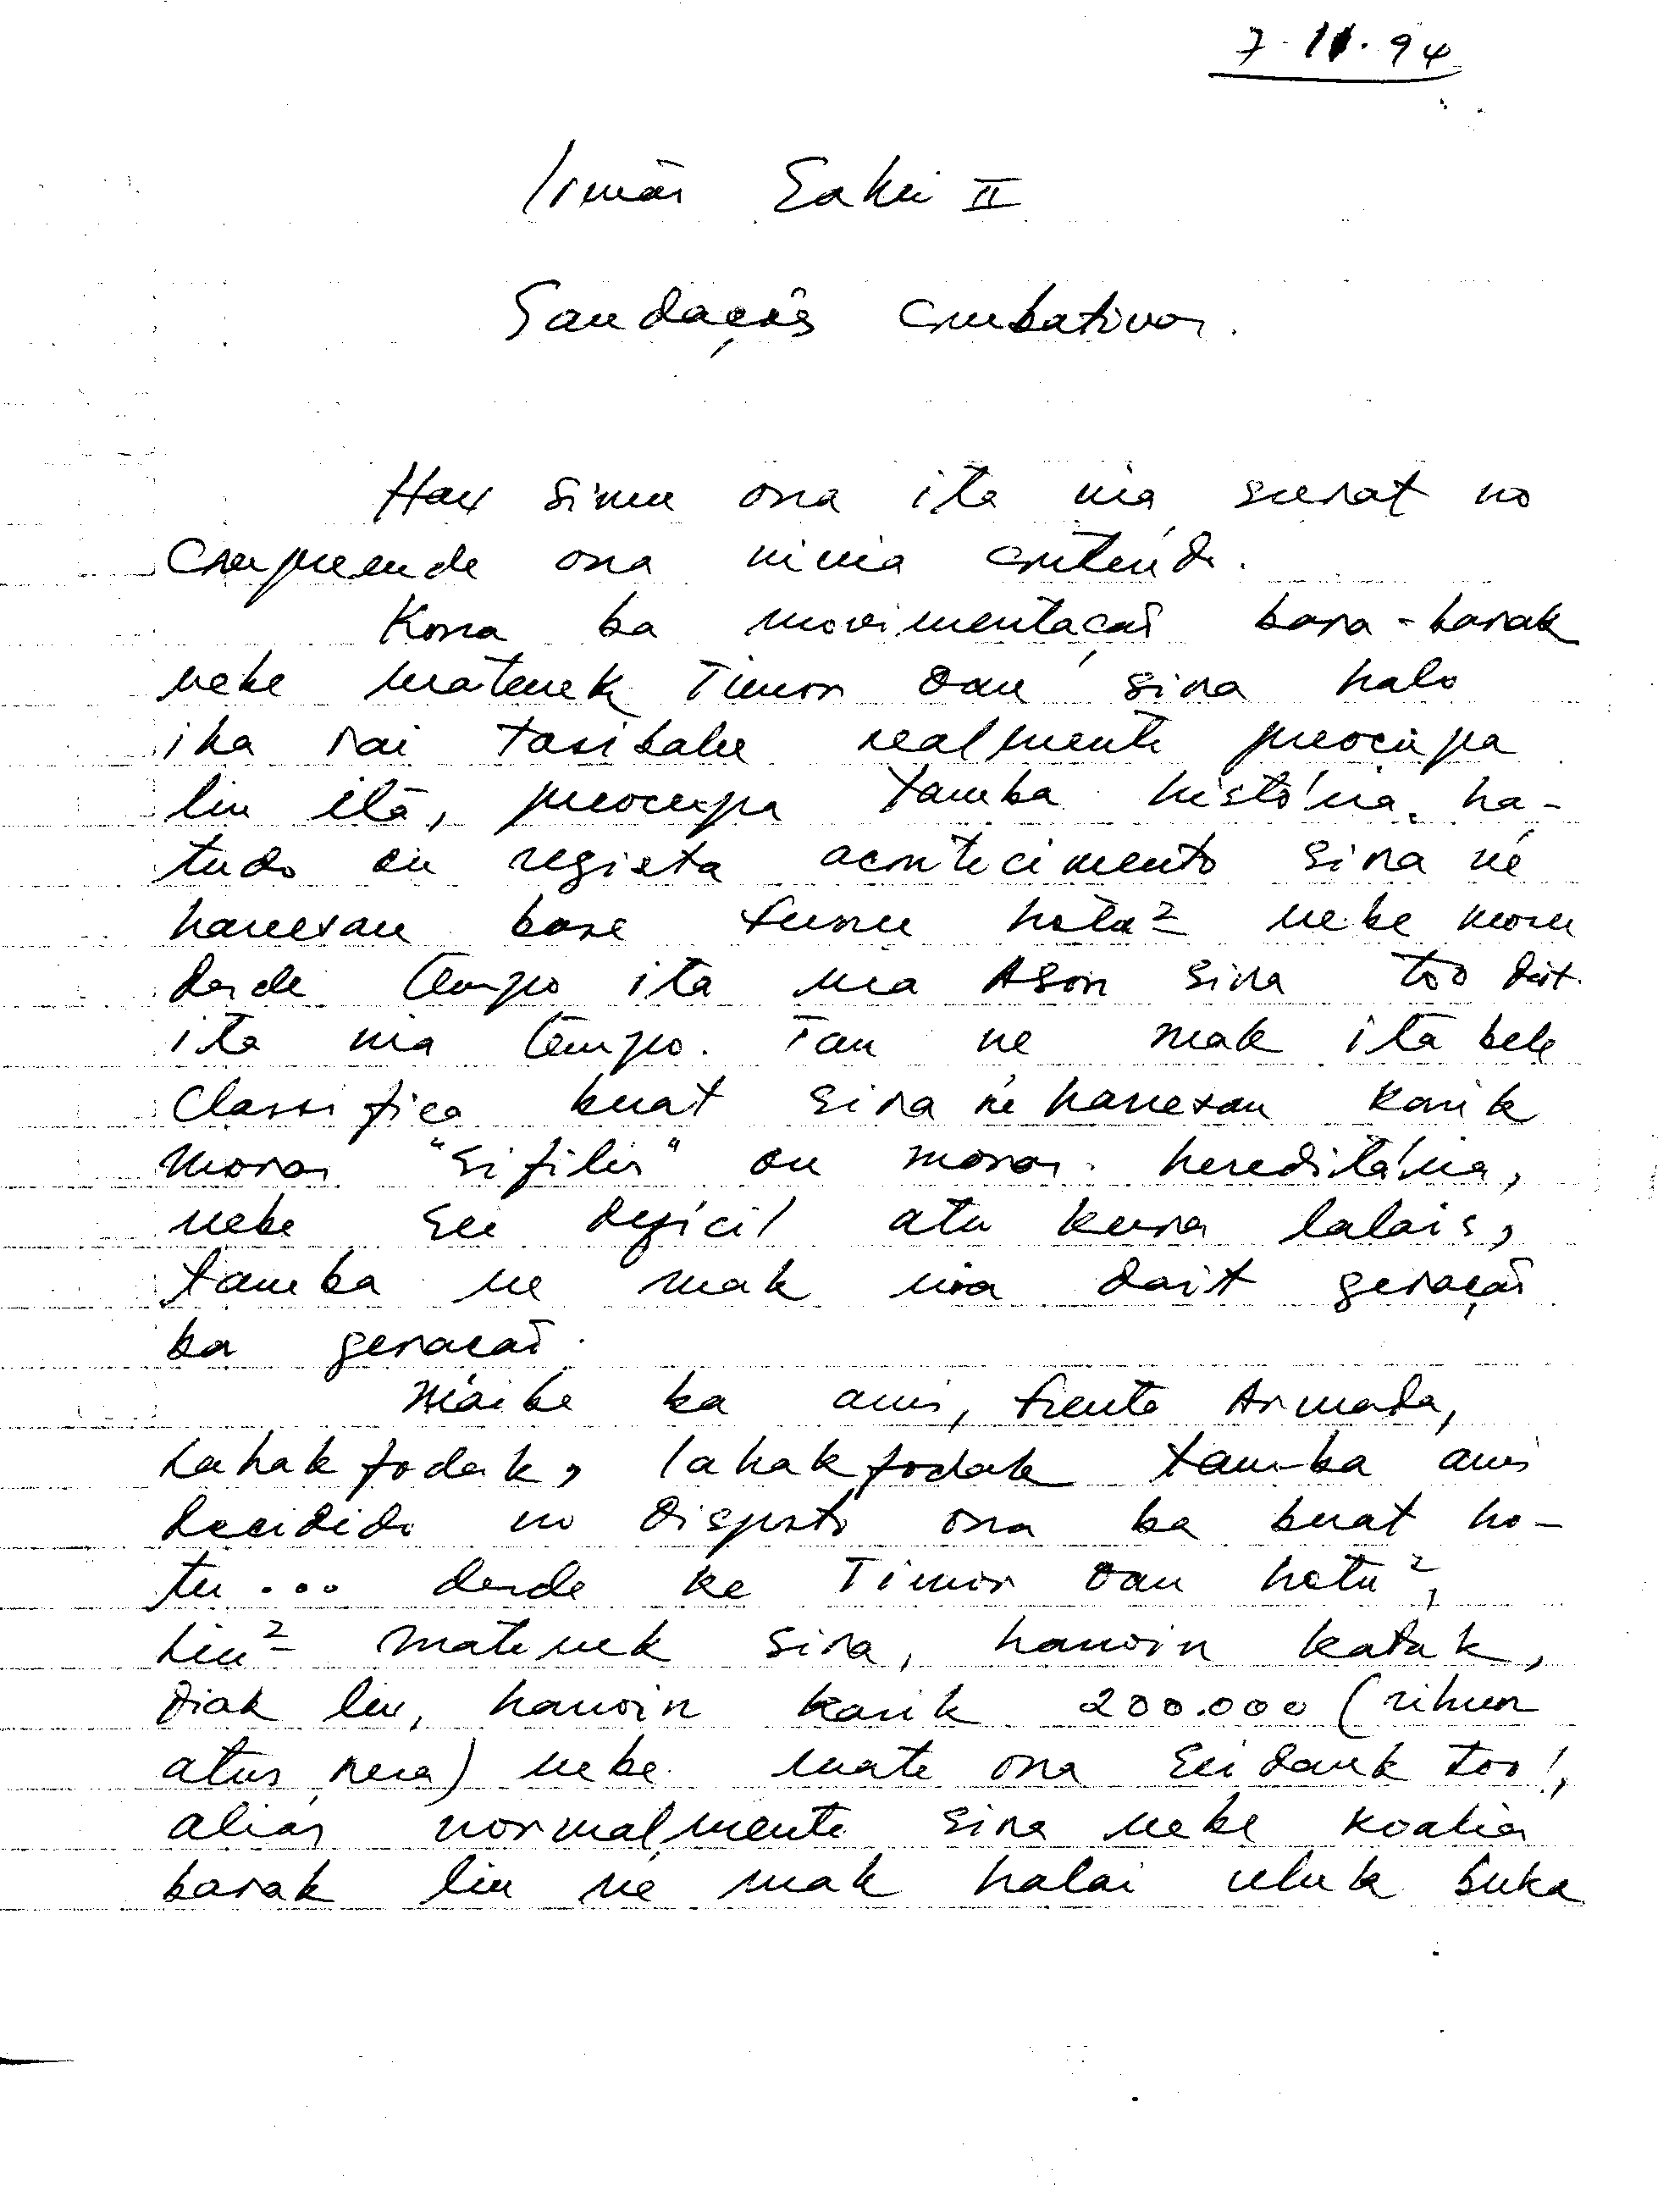 7.11.94
Irmão Sakin II
Saudações combativas.
Hau simu ona ita nia surat no
compreende ona ninia conteúdo.
Kona ba movimentação bara-barak
nebe matenek Timor oan sira halo
iha rai tasibalu realmente preocupa
liu ita, preocupa tamba história ha-
tudo ou regista acontecimento sira né
hanesan base funu hotu² nebe mosu
desde tempo ita nia Ason sira too dait
ita nia tempo. Tan ne mak ita bele
classifica buat sira né hanesan karik
moras "sifilis" ou moras hereditária,
nebe sei dificil atu kura lalais,
tamba ne mak nia dait geração
ba geração.
Máibe ba ami, Frente Armada,
lahakfodak, lahakfodak tamba ami
decidido no disposto ona ba buat ho-
tu... desde ke Timor oan hotu²,
liu² matenek sira, hanoin katak,
diak liu, hanoin karik 200.000 (rihun
atus rua) nebe mate ona seidauk too!,
aliás normalmente sira nebe koalia
barak liu né mak halai uluk buka